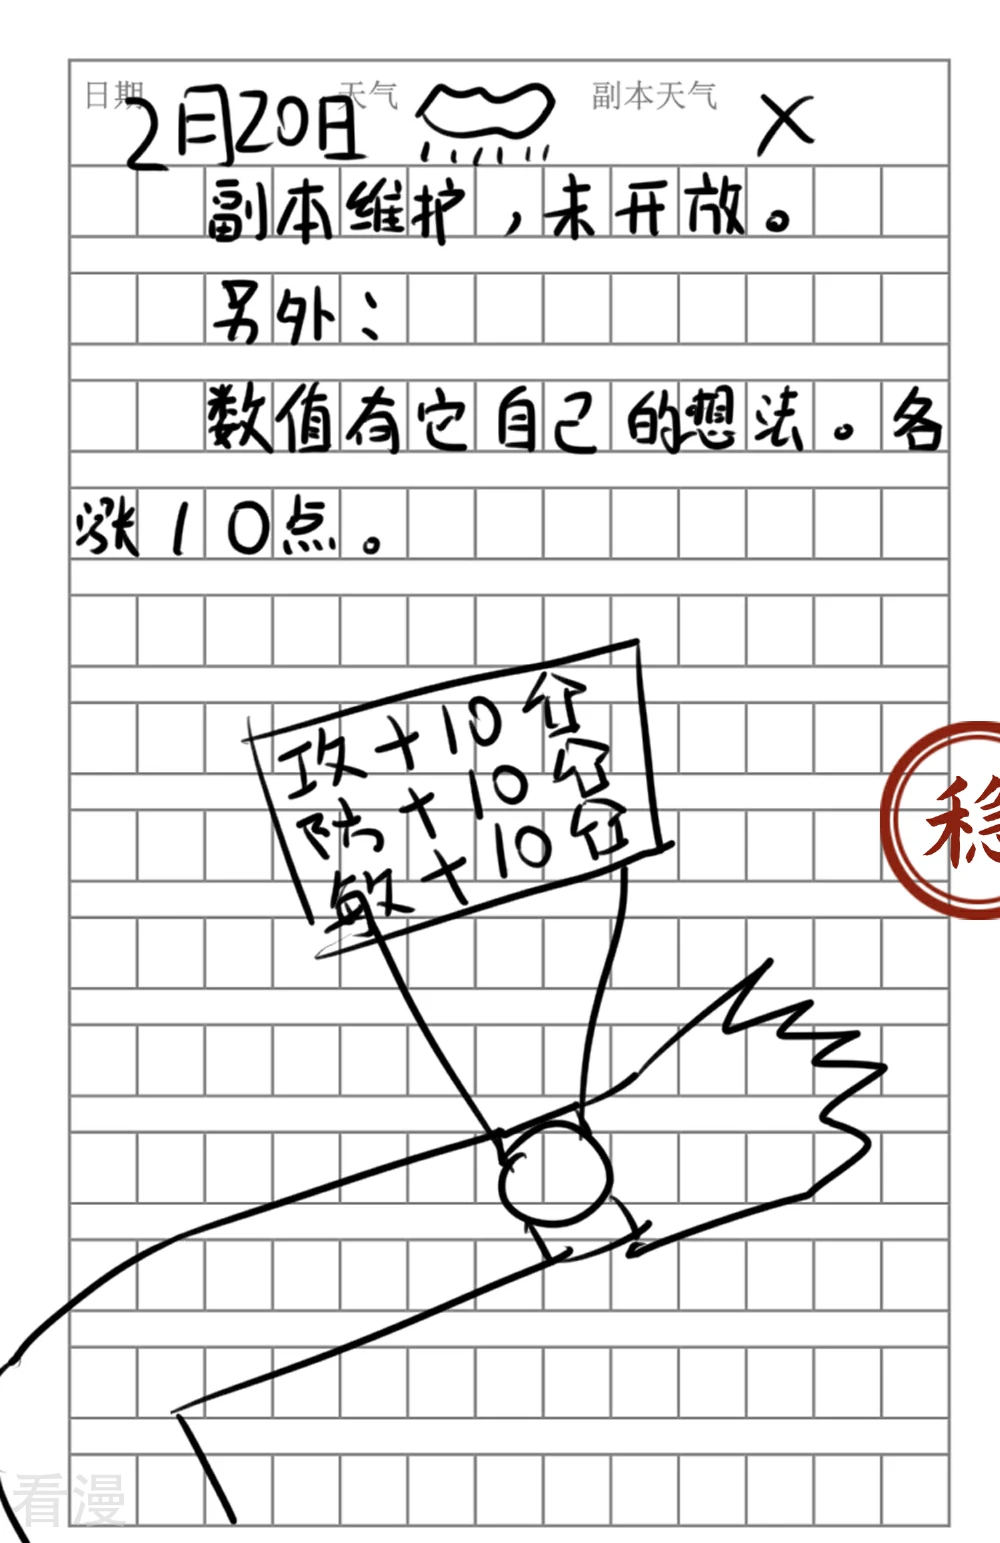 日期 天气 副本天气
2月20日 X
副本维护，未开放。
另外：
数值有它自己的想法。各
涨10点。
攻+10
防+10
敏+10
稳
看漫